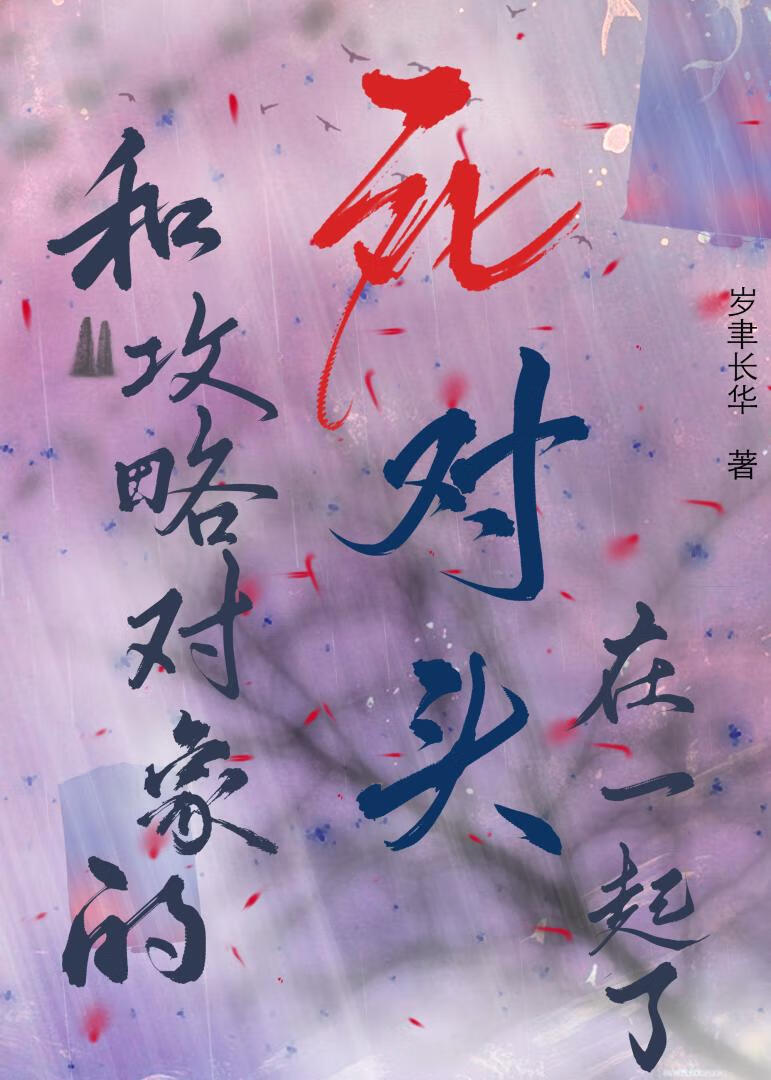 和攻略对象的
死对头
在一起了
岁聿长华 著